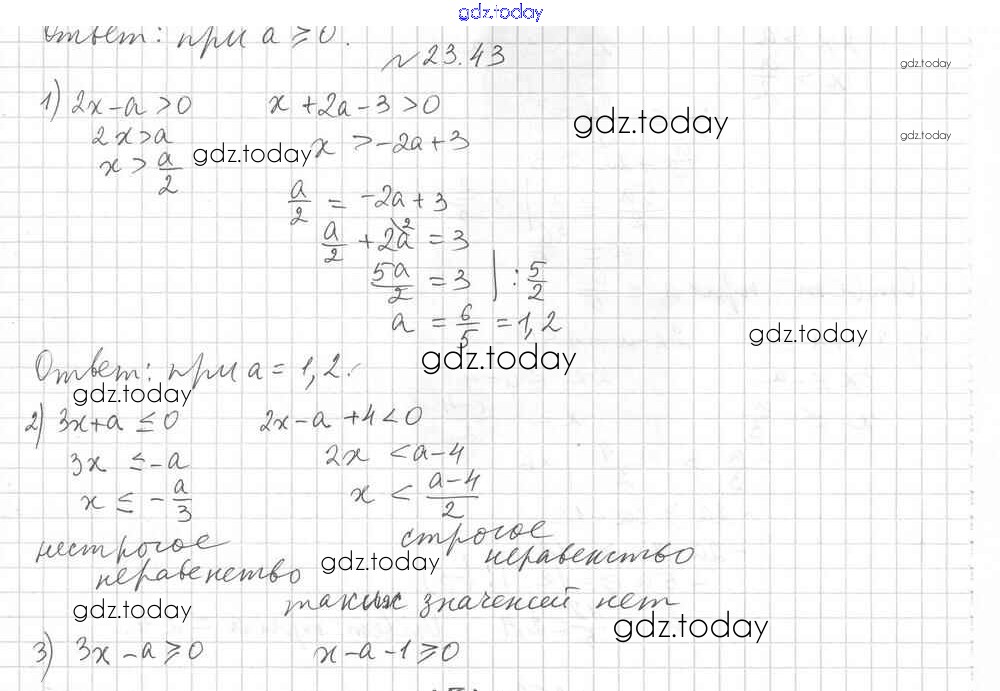 gdz.today
Ответ: при a ≥ 0.
№ 23.43
gdz.today
1) 2x - a > 0    x + 2a - 3 > 0
gdz.today
gdz.today
2x > a    x > -2a + 3
gdz.today
x > a/2
a/2 = -2a + 3
a/2 + 2a\2 = 3
5a/2 = 3 | : 5/2
a = 6/5 = 1,2
gdz.today
gdz.today
Ответ: при a = 1,2.
gdz.today
2) 3x + a ≤ 0    2x - a + 4 < 0
3x ≤ -a    2x < a - 4
x ≤ -a/3    x < (a - 4)/2
нестрогое    строгое
неравенство    неравенство
gdz.today
таких значений нет
gdz.today
gdz.today
3) 3x - a ≥ 0    x - a - 1 ≥ 0